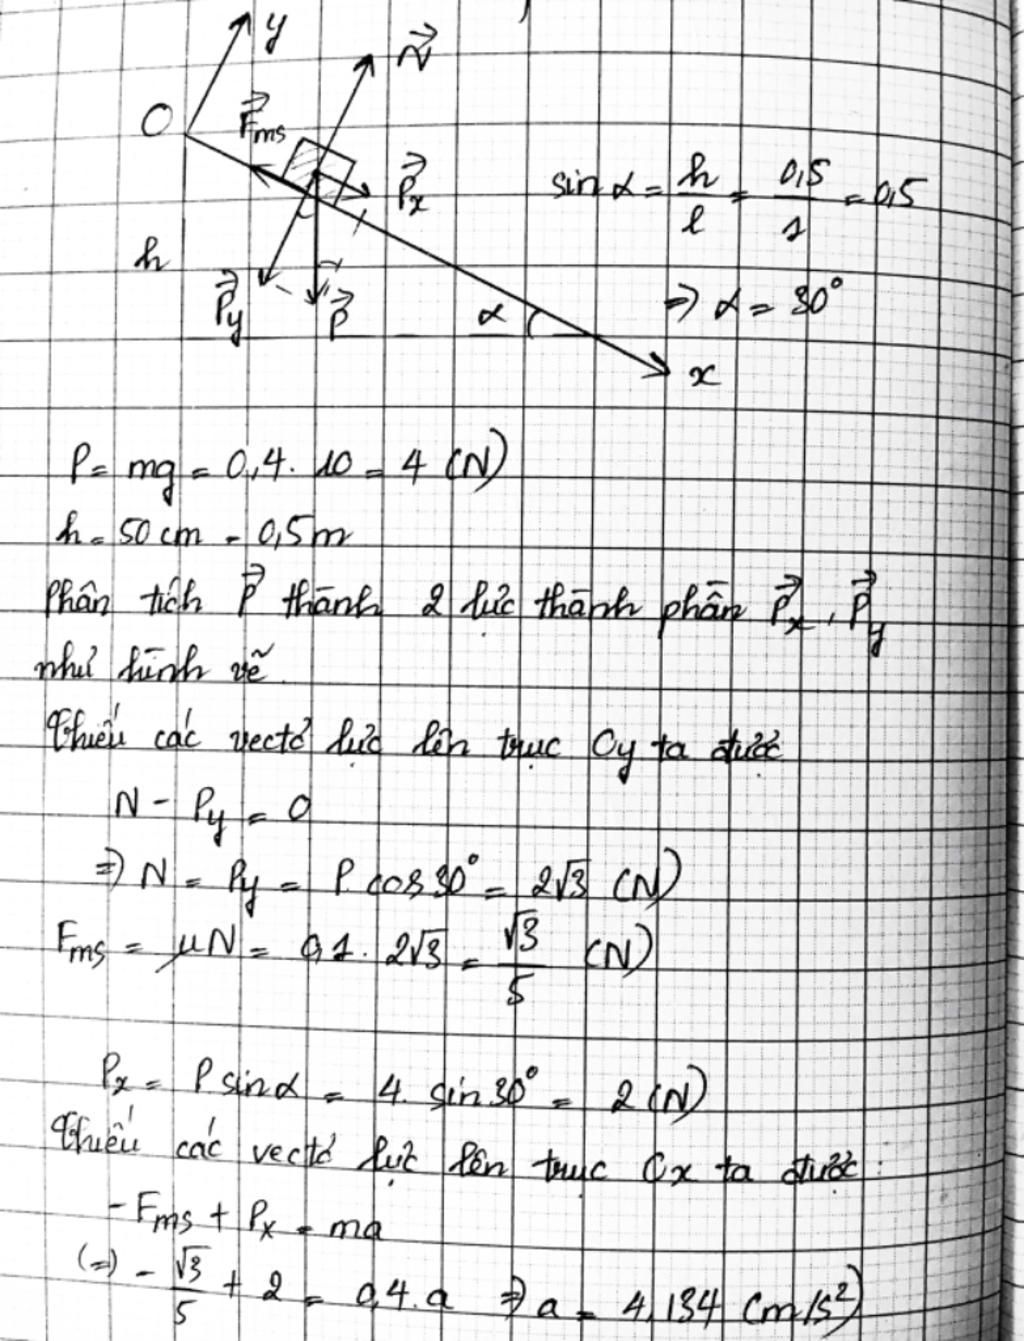 y
N⃗
O
F⃗ms
P⃗x
sin α = h/l = 0,5/1 = 0,5
h
P⃗y
P⃗
α
⇒ α = 30°
x
P = mg = 0,4. 10 = 4 (N)
h = 50 cm = 0,5m
Phân tích P⃗ thành 2 lực thành phần P⃗x, P⃗y
như hình vẽ
Chiếu các vectơ lực lên trục Oy ta được
N - Py = 0
⇒ N = Py = P cos 30° = 2√3 (N)
Fms = μN = 0,1. 2√3 = √3/5 (N)
Px = P sin α = 4. sin 30° = 2 (N)
Chiếu các vectơ lực lên trục Ox ta được:
-Fms + Px = ma
(=) - √3/5 + 2 = 0,4. a ⇒ a = 4,134 (m/s²)